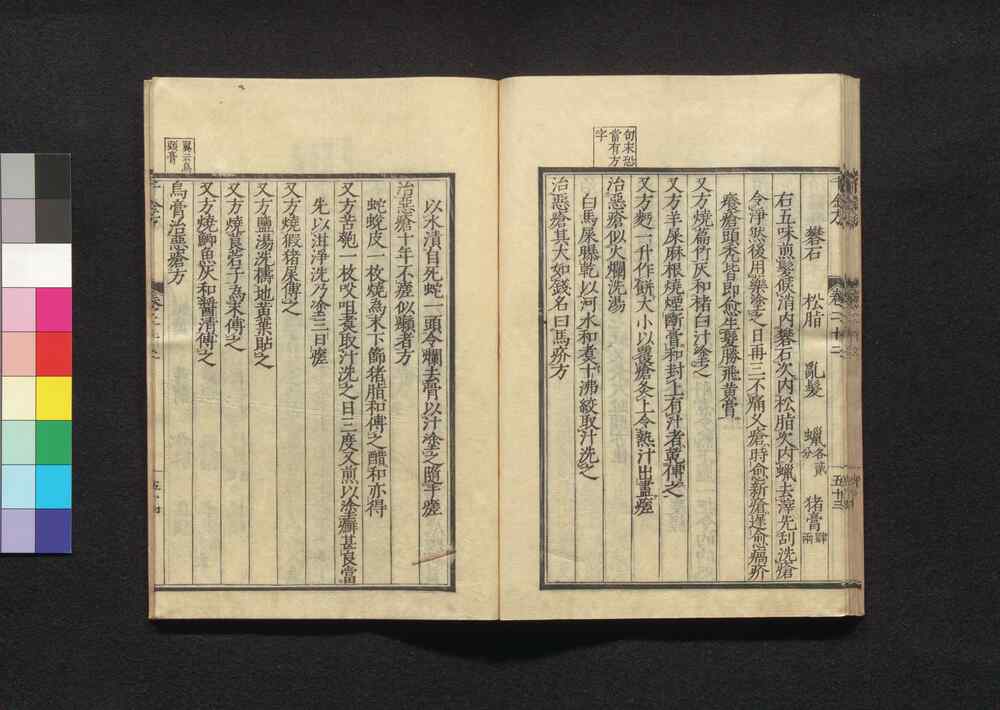 句末恐
當有方
字
礬石 松脂 亂髮 蠟各貳分 猪膏肆兩
右五味煎髮候消内礬石次内松脂次内蠟去滓先刮洗瘡
令淨然後用藥塗之日再三不痛久瘡時愈新瘡遲愈瘑疥
癢瘡頭禿皆即愈生髮勝飛黄膏
又方燒篇竹灰和楮白汁塗之
又方羊屎麻根燒煙斷膏和封上有汁者乾傅之
又方麫一升作餅大小以覆瘡灸上令熱汁出盡瘥
治惡瘡似火爛洗湯
白馬屎曝乾以河水和煮十沸絞取汁洗之
治惡瘡其大如錢名曰馬疥方
翼云烏
頭膏
以水漬自死蛇一頭令爛去骨以汁塗之隨手瘥
治惡瘡十年不瘥似癩者方
蛇蛻皮一枚燒為末下篩猪脂和傅之醋和亦得
又方苦瓠一枚㕮咀煮取汁洗之日三度又煎以塗癬甚良當
先以泔淨洗乃塗三日瘥
又方燒猳猪屎傅之
又方鹽湯洗擣地黄葉貼之
又方燒莨菪子為末傅之
又方燒鯽魚灰和醬清傅之
烏膏治惡瘡方